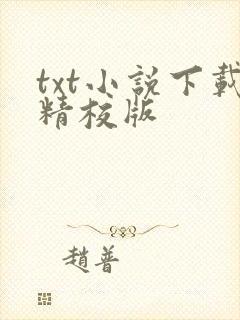 txt小説下載
精校版
趙普